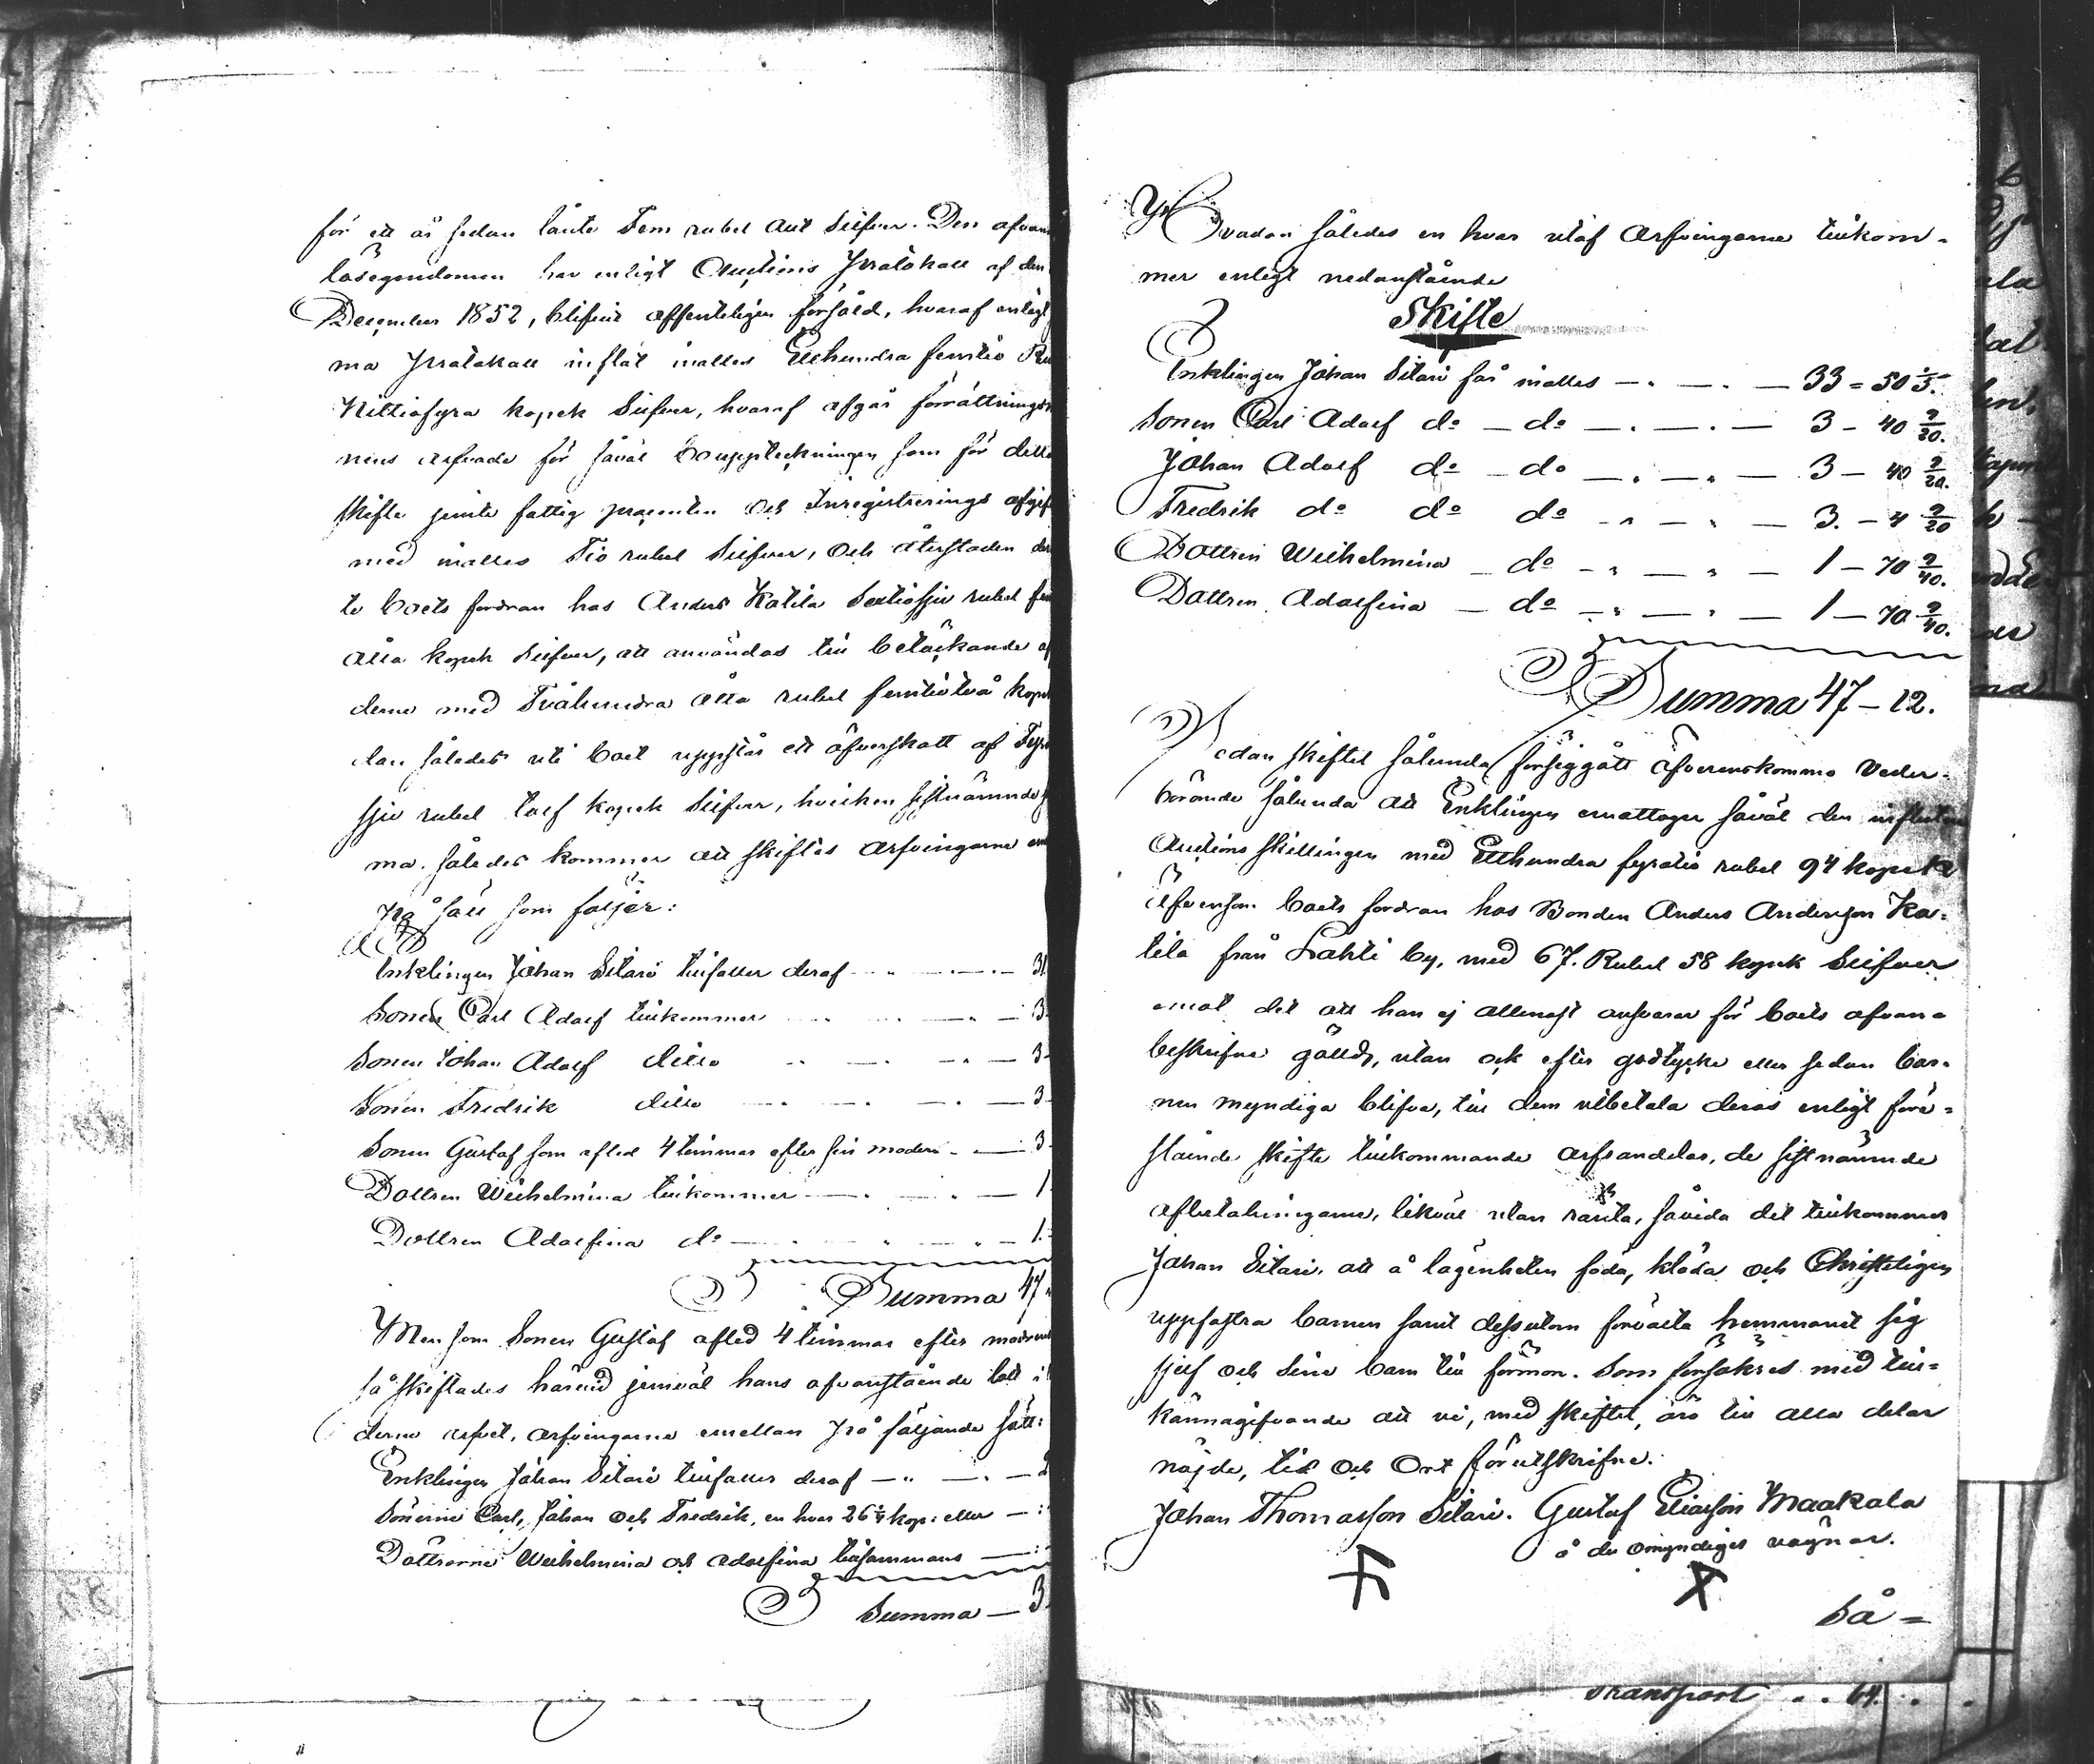 för ett år sedan lånte Fem rubel allt Silfver. Den ofvan
lösegendomen har enligt Auctions Protokoll af den
December 1852, blifvit offenteligen försåld, hvaraf enligt
ma Protokoll influtit inalles Etthundra femtio Ru
Nittiofyra kopek Silfver, hvaraf afgår förrättnings
nens arfvode för såväl Bouppteckningen som för detta
skifte jemte fattig procenten och Inregistrerings afgif
med inalles Tio rubel Silfver, och återstoden
te boets fordran hos Anders Katila Sextiosju rubel fem
åtta kopek Silfver, att användas till betäckande af
derne med Tvåhundra åtta rubel femtiotvå kopek
dan således uti boet uppstår ett öfverskott af Fyr
sju rubel tolf kopek Silfver, hvilken sistnämnde
ma således kommer att skiftas arfvingarne em
på sätt som följer:
Enklingen Johan Sitari tillfaller deraf 31
Sonen Carl Adolf tillkommer 3
Sonen Johan Adolf ditto 3
Sonen Fredrik ditto 3
Sonen Gustaf som afled 4 timmar efter sin moder 3
Dottren Wilhelmina tillkommer 1
Dottren Adolfina do 1
Summa 47
Men som Sonen Gustaf afled 4 timmar efter modren
så skiftades härvid jemväl hans ofvanstående lott i
derne arfvet, arfvingarne emellan på följande sätt:
Enklingen Johan Sitari tillfaller deraf 2
Sönerne Carl, Johan och Fredrik, en hvar 26 1/4 kop: eller
Döttrarne Wilhelmina och Adolfina tillsammans
Summa 3
Hvadan således en hvar utaf Arfvingarne tillkom-
mer enligt nedanstående
Skifte
Enklingen Johan Sitari får inalles 33 = 50 1/5.
Sonen Carl Adolf do do 3 - 40 9/20.
Johan Adolf do do 3 - 40 9/20.
Fredrik do do do 3. - 4 9/20
Dottren Wilhelmina do 1 - 70 9/40.
Dottren Adolfina do 1 - 70 9/40.
Summa 47 - 12.
Sedan skiftet sålunda försiggått öfverenskommo Veder-
börande sålunda att Enklingen emottager såväl den influtne
Auctions skillingen med Etthundra fyratio rubel 94 kopek
äfvensom boets fordran hos Bonden Anders Andersson Ka-
tila från Lahti by, med 67. Rubel 58 kopek Silfver
emot det att han ej allenast ansvarar för boets ofvan-
beskrifne gälld, utan ock efter godtycke eller sedan bar-
nen myndiga blifva, till dem utbetala deras enligt före-
stående skifte tillkommande arfsandelar, de sistnämnde
afbetalningarne, likväl utan ränta, såvida det tillkommer
Johan Sitari, att å lägenheten föda, kläda och Christeligen
uppfostra barnen samt dessutom förvalta hemmanet sig
sjelf och sine barn till förmån. Som försäkras med till-
kännagifvande att vi, med skiftet, äro till alla delar
nöjde, tid och Ort förutskrifne.
Johan Thomasson Sitari. Gustaf Eliasson Maakala
å de omyndiges vägnar.
Så =
Transport . . 64.